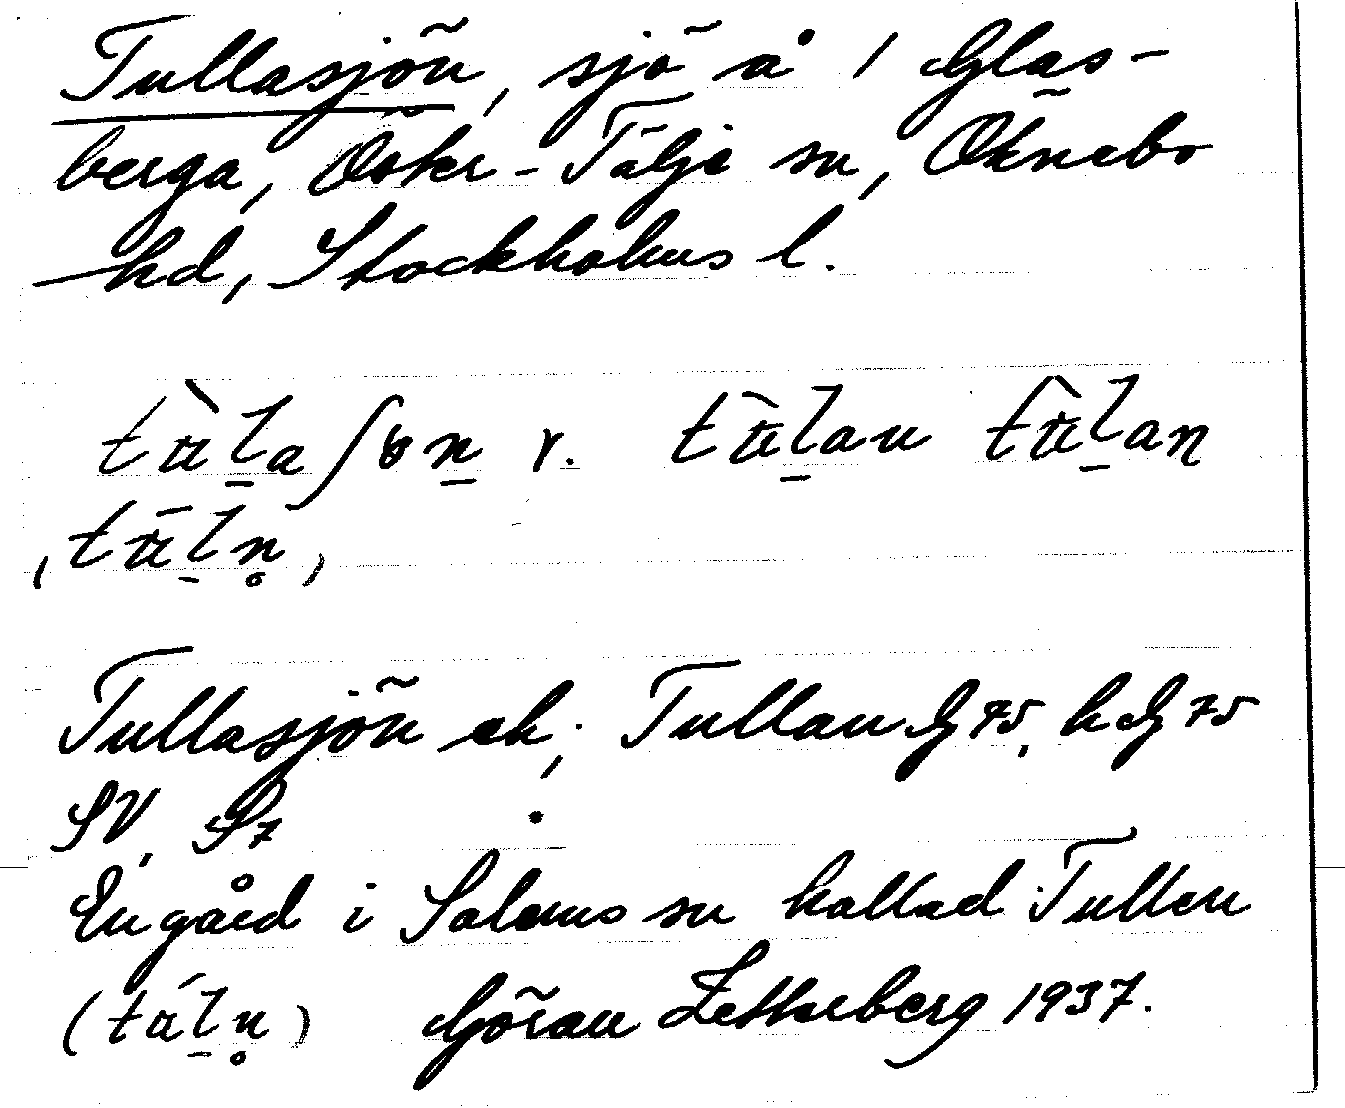 Tullasjön, sjö å 1 Glas-
berga, Öster-Tälje sn, Öknebo
hd, Stockholms l.
Tullasjön ek; Tullan G 75, h G 75
SV, S 7
En gård i Salems sn kallad Tullen
Göran Zetterberg 1937.